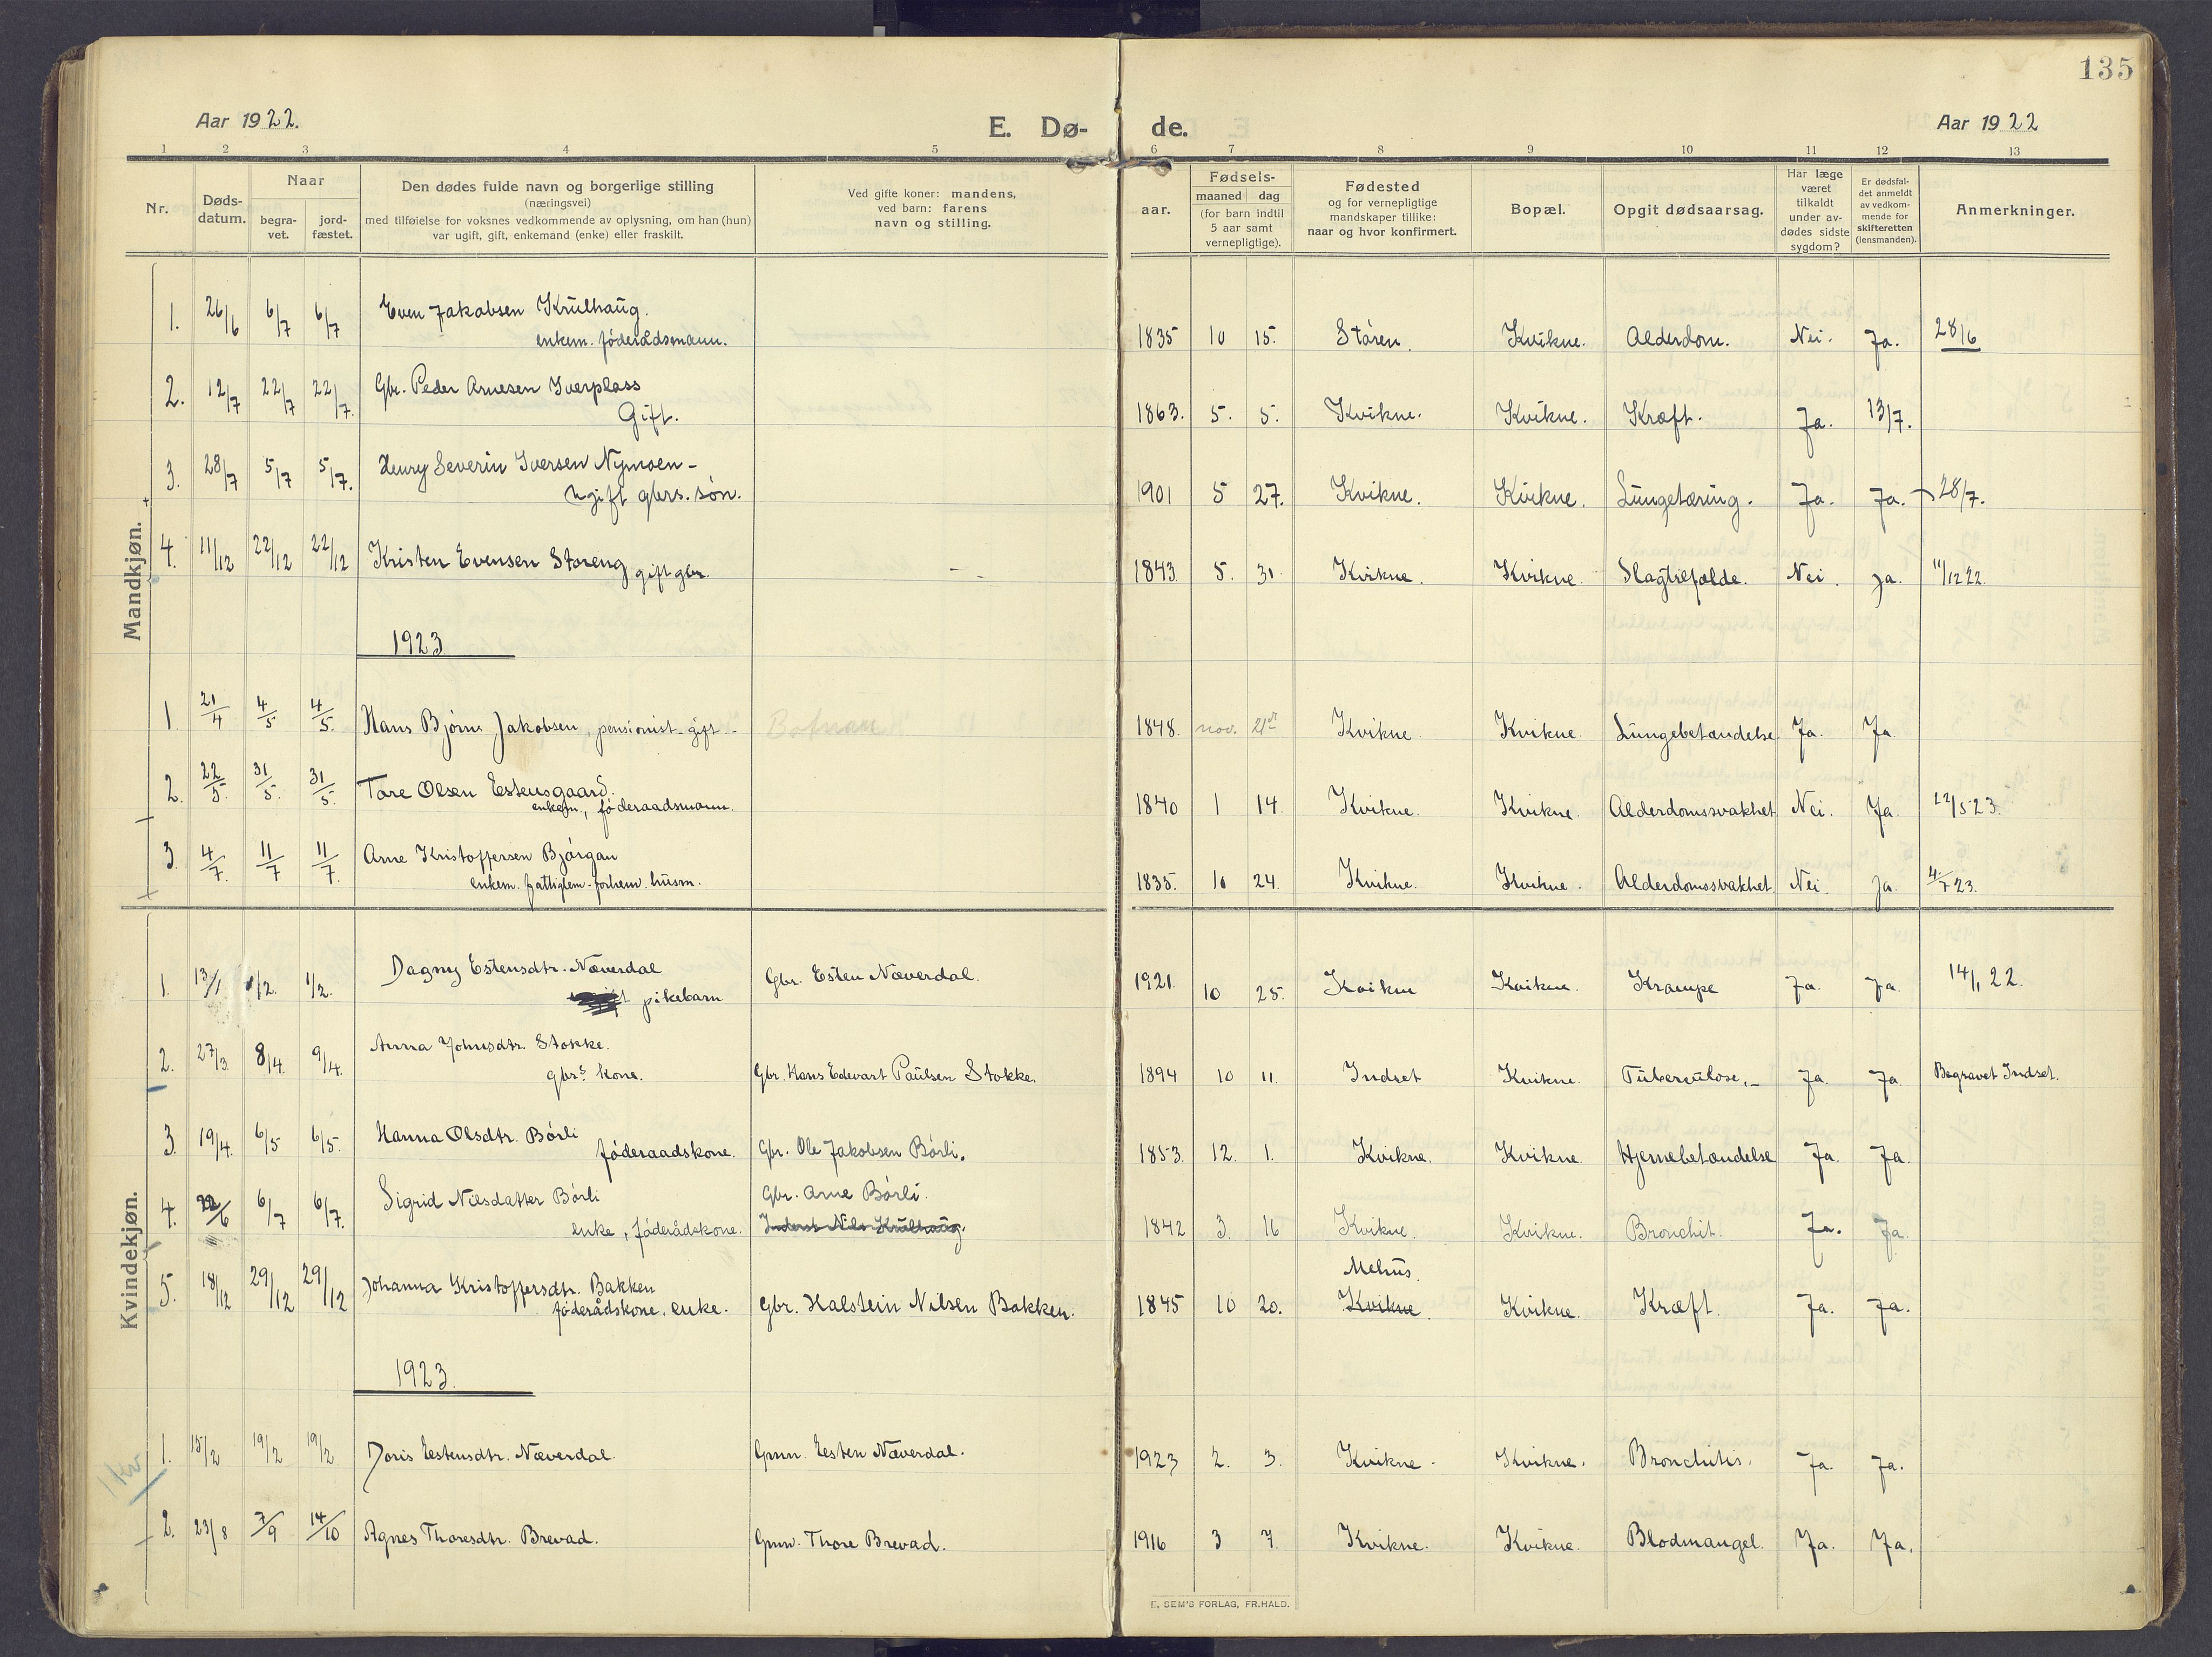 135
Aar 1922.
E. Dø- de.
Aar 1922
1 2 3 4 5 6 7 8 9 10 11 12 13
Nr.
Døds-
datum.
Naar
begra-
vet.
jord-
fæstet.
Den dødes fulde navn og borgerlige stilling
(næringsvei)
med tilføielse for voksnes vedkommende av oplysning, om han (hun)
var ugift, gift, enkemand (enke) eller fraskilt.
Ved gifte koner: mandens,
ved barn: farens
navn og stilling.
Fødsels-
aar.
maaned dag
(for barn indtil
5 aar samt
vernepligtige).
Fødested
og for vernepligtige
mandskaper tillike:
naar og hvor konfirmert.
Bopæl.
Opgit dødsaarsag.
Har læge
været
tilkaldt
under av-
dødes sidste
sygdom?
Er dødsfal-
det anmeldt
av vedkom-
mende for
skifteretten
(lensmanden).
Anmerkninger.
Mandkjøn.
1. 26/6 6/7 6/7 Even Jakobsen Krulhaug.
enkem. føderådsmann. 1835 10 15. Støren. Kvikne. Alderdom. Nei. Ja. 28/6
2. 12/7 22/7 22/7. Gbr. Peder Arnesen Iverplass
Gift. 1863. 5. 5. Kvikne. Kvikne. Kræft. Ja. 13/7.
3. 28/7 5/7 5/7. Henry Severin Iversen Nymoen -
Ugift gbrs. søn. 1901 5 27. Kvikne. Kvikne. Lungetæring. Ja. Ja. 28/7.
4. 11/12 22/12 22/12 Kristen Evensen Storeng gift gbr. 1843. 5. 31. Kvikne. Kvikne. Slagtilfælde. Nei. Ja. 11/12 22.
1923
1 21/4 4/5 4/5. Hans Bjørns Jakobsen, pensionist - gift - 1848. nov. 21 Kvikne Kvikne. Lungebetændelse Ja. Ja
2. 22/5. 31/5. 31/5. Tore Olsen Estensgaard.
enkem., føderaadsmann. 1840 1 14. Kvikne. Kvikne. Alderdomssvakhet Nei. Ja. 22/5 23.
3. 4/7. 11/7 11/7. Arne Kristoffersen Bjørgan
enkem. fattiglem - forhenv. husm. 1835. 10 24. Kvikne. Kvikne. Alderdomssvakhet. Nei. Ja. 4/7 23.
Kvindekjøn.
1. 13/1 1/2. 1/2. Dagny Estensdtr. Næverdal
pikebarn Gbr. Esten Næverdal. 1921. 10 25. Kvikne Kvikne. Krampe Ja. Ja. 14/1 22.
2. 27/3. 8/4. 9/4. Anna Johnsdtr. Stokke.
gbrs kone. Gbr. Hans Edevart Paulsen Stokke. 1894 10 11. Indset Kvikne. Tuberculose. - Ja. Ja. Begravet Indset.
3. 19/4. 6/5 6/5. Hanna Olsdtr. Børli
føderaadskone. Gbr. Ole Jakobsen Børli. 1853. 12. 1. Kvikne. Kvikne. Hjernebetændelse Ja. Ja.
4. 22/6 6/7 6/7. Sigrid Nilsdatter Børli
enke, føderådskone. Gbr. Arne Børli.
Inderst Nils Krulhaug. 1842 3. 16 Kvikne. Kvikne. Bronchit. Ja. Ja.
5. 18/12 29/12 29/12 Johanna Kristoffersdtr. Bakken
føderådskone, enke. Gbr. Halstein Nilsen Bakken. 1845 10 20. Mehus.
Kvikne. Kvikne. Kræft. Ja. Ja.
1923.
1 Kv
1. 15/2 19/2 19/2 Doris Estensdtr. Næverdal. Gmn. Esten Næverdal. 1923 2. 3. Kvikne. Kvikne. Bronchitis. Ja. Ja.
2. 23/8 7/9 14/10 Agnes Thoresdtr. Brevad. Gmn. Thore Brevad. 1916 3 7. Kvikne. Kvikne. Blodmangel. Ja. Ja.
E. SEM'S FORLAG, FR.HALD.